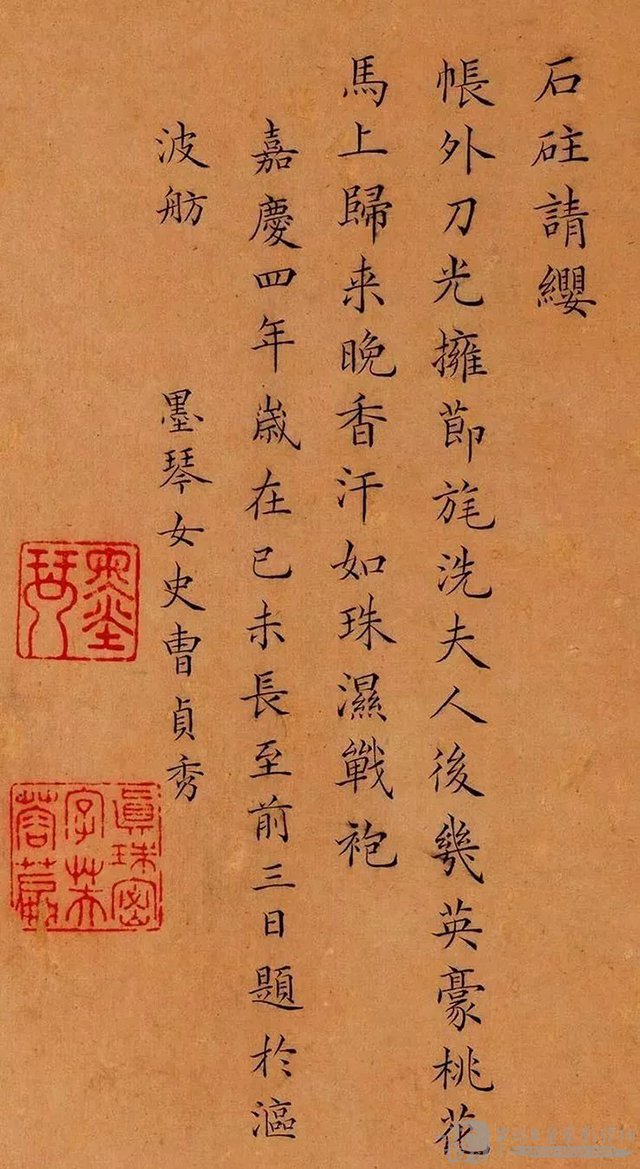 石砫請纓
帳外刀光擁節旄洗夫人後幾英豪桃花
馬上歸来晚香汗如珠濕戰袍
嘉慶四年歲在己未長至前三日題於漚
波舫 墨琴女史曹貞秀
墨琴
真珠密
字芙
蓉